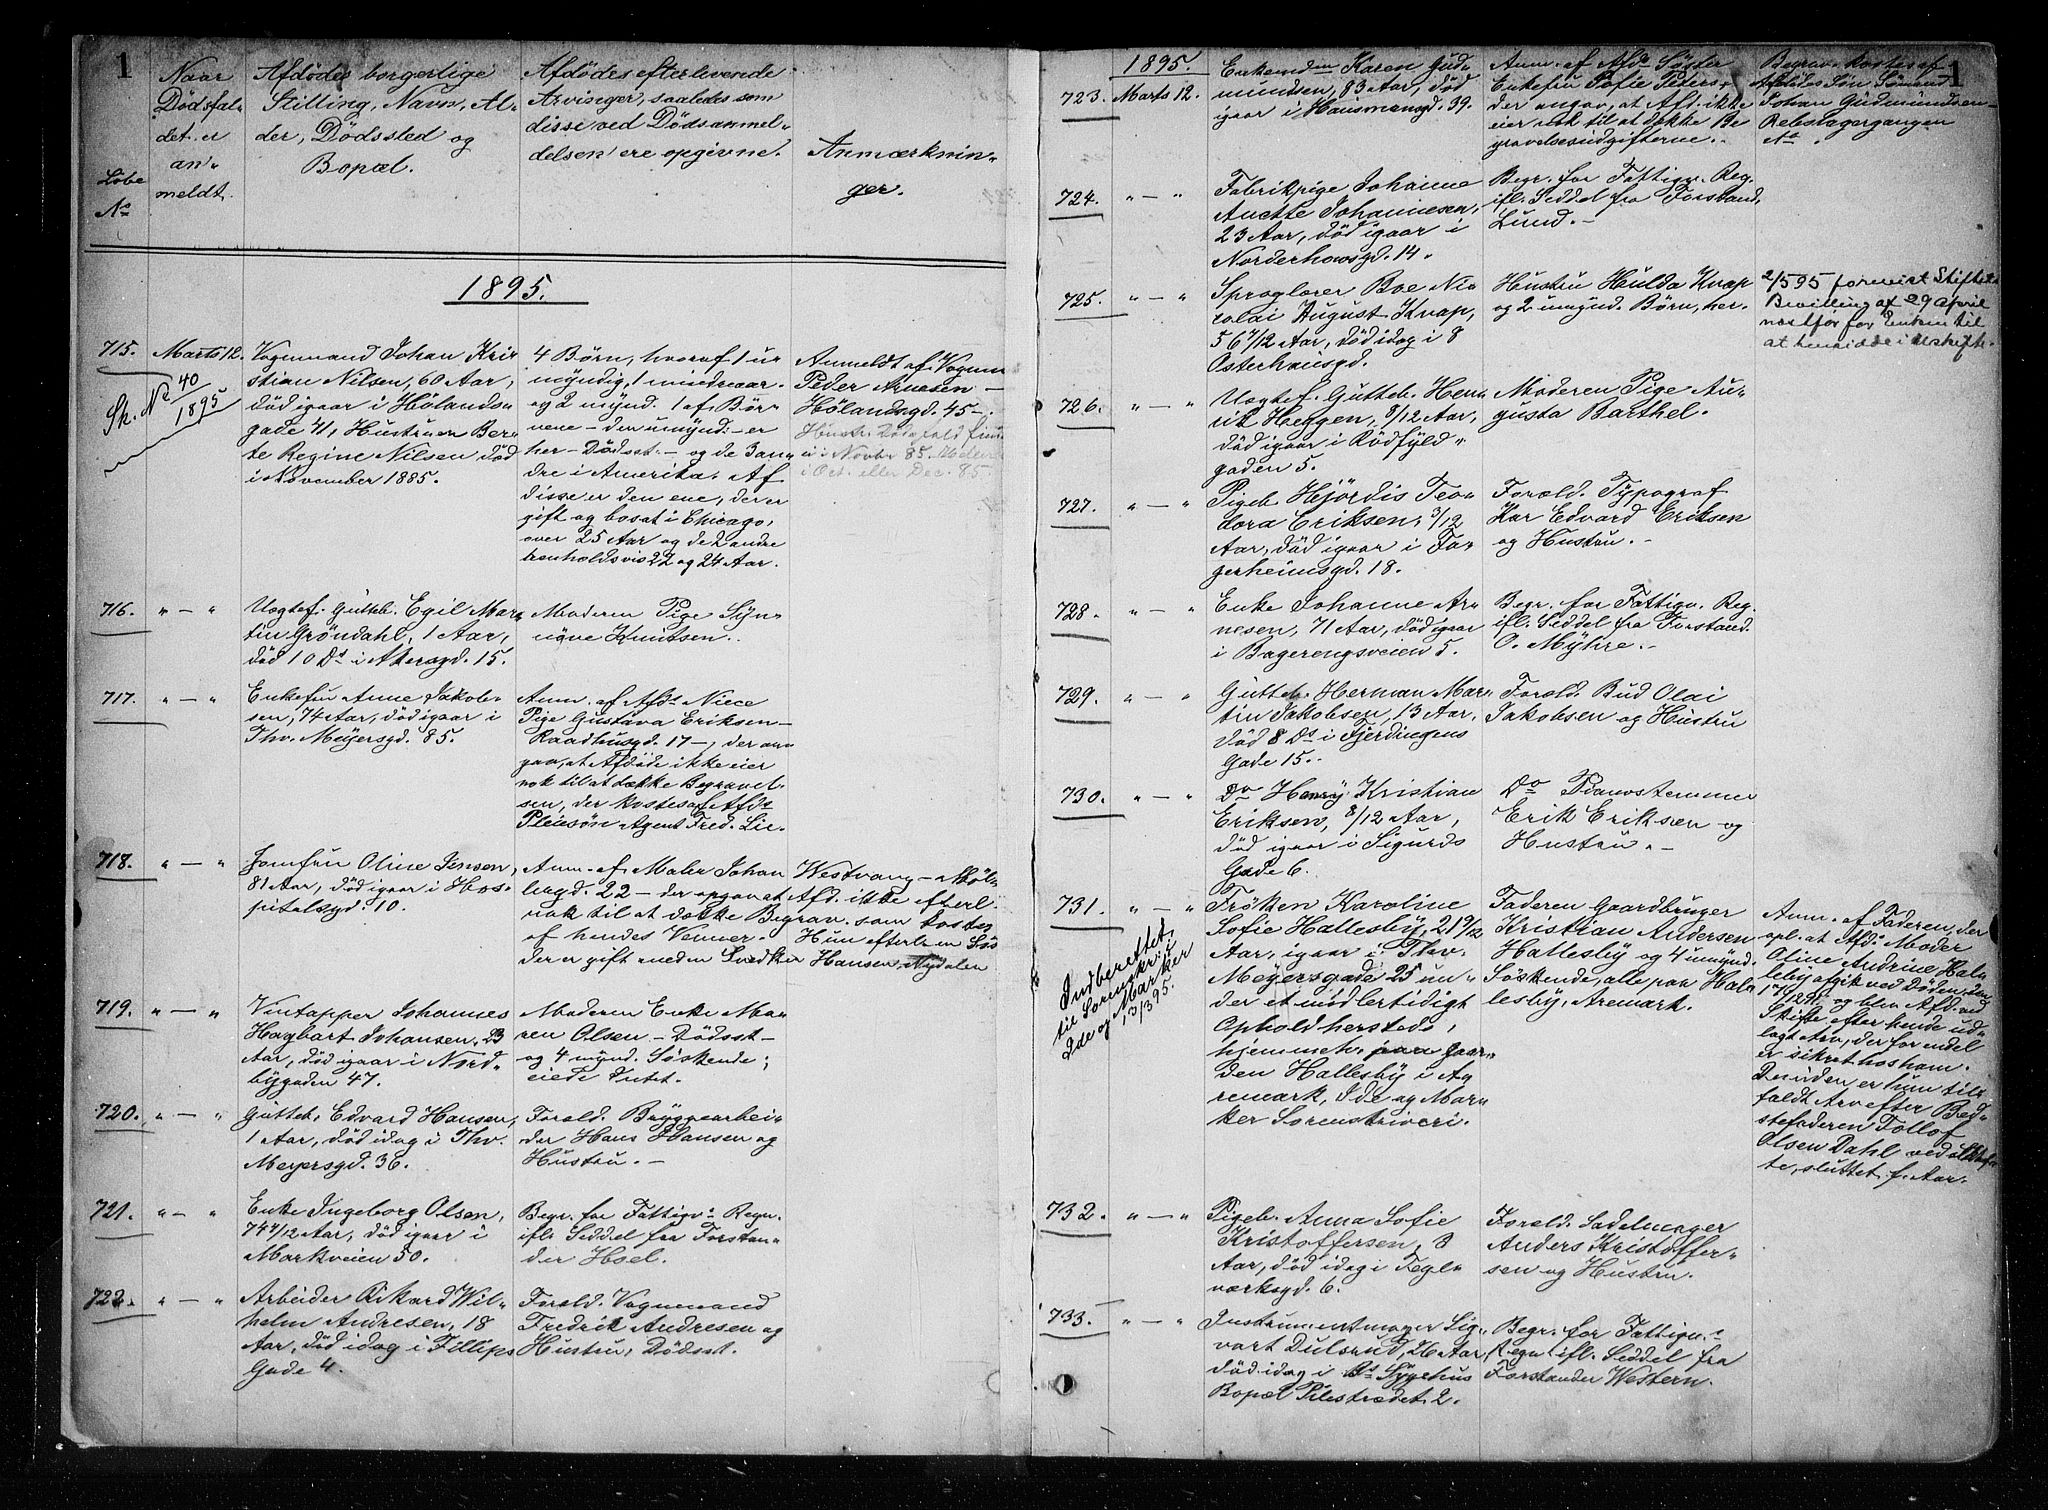 1
Løbe
No
Naar
Dødsfal-
det er
an-
meldt.
Afdødes borgerlige
Stilling, Navn, Al-
der, Dødssted og
Bopæl.
Afdødes efterlevende
Arvinger, saaledes som
disse ved Dødsanmel-
delsen ere opgivne.
Anmærknin-
ger.
1895.
715. Marts 12.
Sk. No 40/1895
Vognmand Johan Kri-
stian Nilsen, 60 Aar,
død igaar i Hølands-
gade 41, Hustruen Ber-
te Regine Nilsen død
i November 1885.
4 Børn, hvoraf 1 u-
myndig, 1 mindreaar.
og 2 mynd. 1 af Bør-
nene – den umynd. – er
her – Dødsst. – og de 3 an-
dre i Amerika. Af
disse er den ene, der er
gift og bosat i Chicago,
over 25 Aar og de 2 andre
henholdsvis 22 og 24 Aar.
Anmeldt af Vognm
Peder Arnesen –
Hølandsgd. 45 –.
i Novbr 85.
i Oct. eller Dec. 85.
716. " – "
Uægtef. Gutteb. Egil Mar-
tin Grøndahl, 1 Aar,
død 10 Ds i Akersgd. 15.
Moderen Pige Syn-
nøve Knutsen.
717. " – "
Enkefru Anne Jakob-
sen, 74 Aar, død igaar i
Thv. Meyersgd. 85.
Anm. af Afds Niece
Pige Gustava Eriksen –
Raadhusgd. 17 –, der an-
gav, at Afdøde ikke eier
nok til at dække Begravel-
sen, der kostes af Afds
Pleiesøn Agent Fred. Lie.
718. " – "
Jomfru Oline Jensen,
81 Aar, død igaar i Hos-
pitalsgd. 10.
Anm. af Maler Johan Westvang – Møl-
lergd. 22 – der opgav at Afd. ikke efterl.
nok til at dække Begrav. som kostes
af hendes Venner. Hun efterl. en Søs
der er gift med en Snedker Hansen, Nydalen
719. " – "
Vintapper Johannes
Hagbart Johansen, 23
Aar, død igaar i Nord-
bygaden 47.
Moderen Enke Ma-
ren Olsen – Dødsst –
og 4 mynd. Søskende;
eiede Intet.
720. " – "
Gutteb. Edvard Hansen,
1 Aar, død idag i Thv.
Meyersgd. 36.
Foræld. Bryggearbei-
der Hans Hansen og
Hustru. –
721. " – "
Enke Ingeborg Olsen,
74 4/12 Aar, død igaar i
Markveien 50.
Begr. for Fattigv. Regn.
ifl. Seddel fra Forstan-
der Hsel.
722. " – "
Arbeider Rikard Wil-
helm Andresen, 18
Aar, død idag i Fillips
Gade 4.
Foræld. Vognmand
Fredrik Andresen og
Hustru, Dødsst.
1
1895.
723. Marts 12.
Enkemdm Karen Gud-
mundsen, 83 Aar, død
igaar i Hausmannsgd. 39.
Anm. af Afds Søster
Enkefru Sofie Peders-
der angav, at Afd. ikke
eier nok til at dække Be
gravelsesudgifterne. –
Begrav. kostes af
Afdødes Søn Sømand
Johan Gudmundsen –
Rebslagergangen
724. " – "
Fabrikpige Johanne
Anette Johannesen,
23 Aar, død igaar i
Norderhovsgd. 14.
Begr. for Fattigv. Reg.
ifl. Seddel fra Forstand.
Lund. –
725. " – "
Sproglærer Boe Ni-
colai August Knap,
56 7/12 Aar, død idag i 8
Osterhausgd.
Hustru Hulda Knap
og 2 umynd. Børn, her.
2/5 95 forevist Stiftets
Bevilling af 29 April
næstfør for Enken til
at hensidde i uskifte.
726. " – "
Uægtef. Gutteb. Hen-
rik Heggen, 8/12 Aar,
død igaar i Rødfyld-
gaden 5.
Moderen Pige Au-
gusta Barthel.
727. " – "
Pigeb. Hjørdis Teo-
dora Eriksen, 3/12
Aar, død igaar i Fa-
gerheimsgd. 18.
Foræld. Typograf
Kar Edvard Eriksen
og Hustru. –
728. " – "
Enke Johanne Ar-
nesen, 71 Aar, død igaar
i Bagerengsveien 5.
Begr. for Fattigv. Reg.
ifl. Seddel fra Forstand.
O. Myhre. –
729. " – "
Gutteb. Herman Mar-
tin Jakobsen, 13 Aar,
død 8 Ds i Fjerdingens
Gade 15.
Foræld. Bud Olai
Jakobsen og Hustru
730. " – "
Do Henry Kristian
Eriksen, 8/12 Aar,
død igaar i Sigurds
Gade 6.
Do Pianostemmer
Erik Eriksen og
Hustru. –
731. " – "
Indberettet
til Sorenskr. i
Ide og Marker
13/3 95.
Frøken Karoline
Sofie Hallesby, 21 9/12
Aar, igaar i Thv.
Meyersgade 25 un-
der et midlertidigt
Ophold hersteds,
hjemmeh. paa Gaar-
den Hallesby i A-
remark, Ide og Mar-
ker Sorenskriveri.
Faderen Gaardbruger
Kristian Andersen
Hallesby og 4 umynd.
Søskende, alle paa Hal-
lesby, Aremark.
Anm. af Faderen, der
opl. at Afds Moder
Oline Andrine Hal-
leby afgik ved Døden den
og blev Afd. ved
Skifte efter hende ud-
lagt Arv, der for endel
er sikret hos ham.
Desuden er hun til-
faldt Arv efter Bed-
stefaderen Tollof
Olsen Dahl ved Skif-
te, sluttet f. Aar.
732. " – "
Pigeb. Anna Sofie
Kristoffersen, 3
Aar, død idag i Tegl-
værksgd. 6.
Foræld. Sadelmager
Anders Kristoffer-
sen og Hustru.
733. " – "
Instrumentmager Sig-
vart Dulsrud, 26 Aar,
død idag i Bs Sygehus
Bopæl Pilestrædet 2.
Begr. for Fattigv.s
Regn. ifl. Seddel fra
Forstander Western.